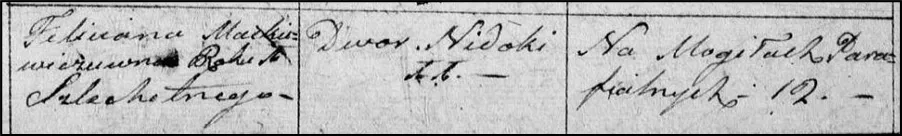 Feliciana Mackie-
wiczuwna Roku
Szlachetnego -
Dwor. Nidoki
tt. -
Na Mogiłach Para-
fialnych - 12. -